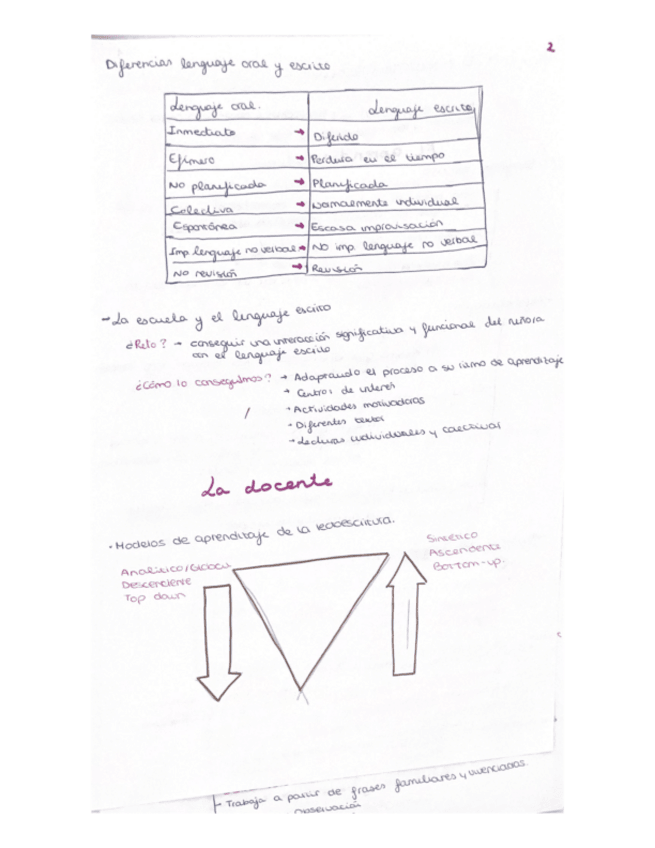 2
Diferencias lenguaje oral y escrito
Lenguaje oral. Lenguaje escrito
Inmediato → Diferido
Efímero → Perdura en el tiempo
No planificada → Planificada
Colectiva → Normalmente individual
Espontánea → Escasa improvisación
Imp. lenguaje no verbal → No imp. lenguaje no verbal
No revisión → Revisión
- La escuela y el lenguaje escrito
¿Reto? → conseguir una interacción significativa y funcional del niño/a
con el lenguaje escrito
¿Cómo lo conseguimos? → Adaptando el proceso a su ritmo de aprendizaje
→ Centros de interés
→ Actividades motivadoras
→ Diferentes textos
→ Lecturas individuales y colectivas
La docente
• Modelos de aprendizaje de la lectoescritura.
Analítico/Global
Descendente
Top down
Sintético
Ascendente
Bottom-up.
Trabaja a partir de frases familiares y vivenciadas.
observación